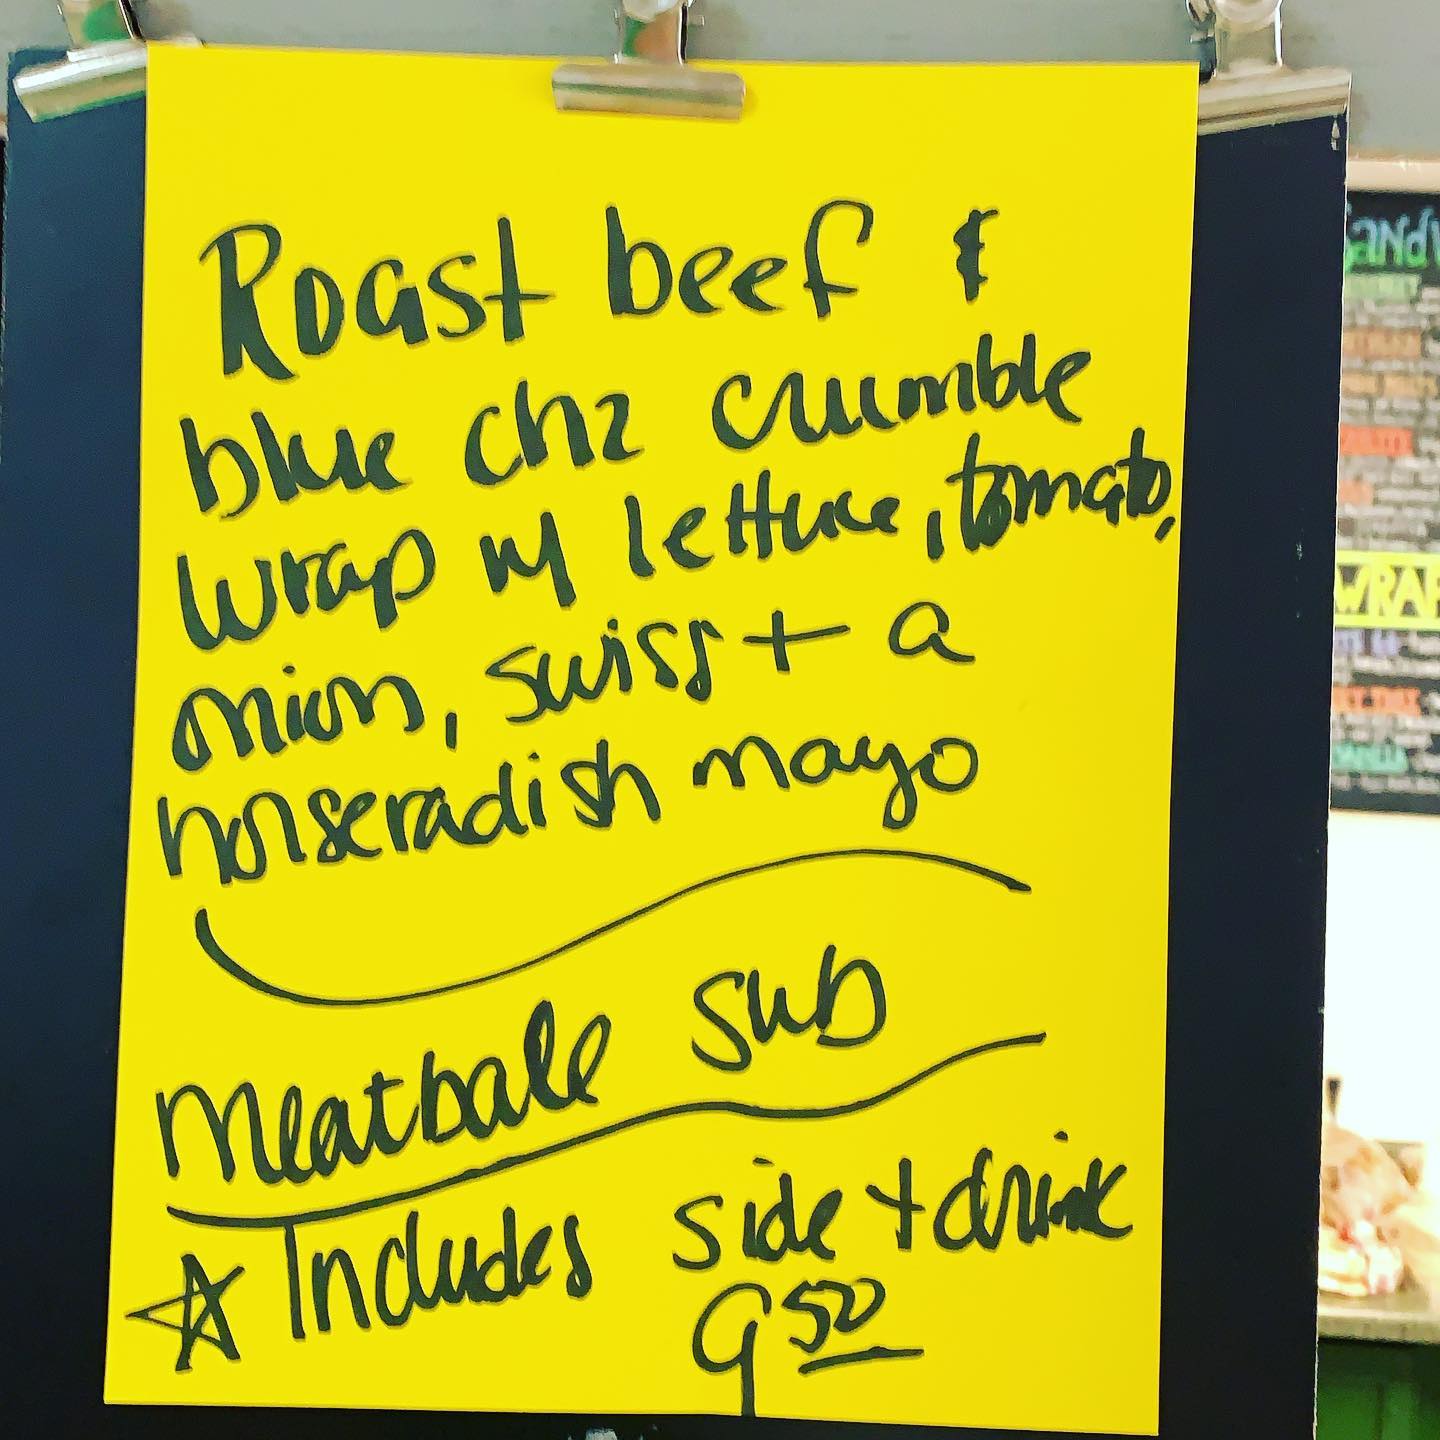 Roast beef &
blue chz crumble
wrap w/ lettuce, tomato,
onion, swiss + a
horseradish mayo
Meatball sub
☆ Includes side + drink
9 50
WRAP